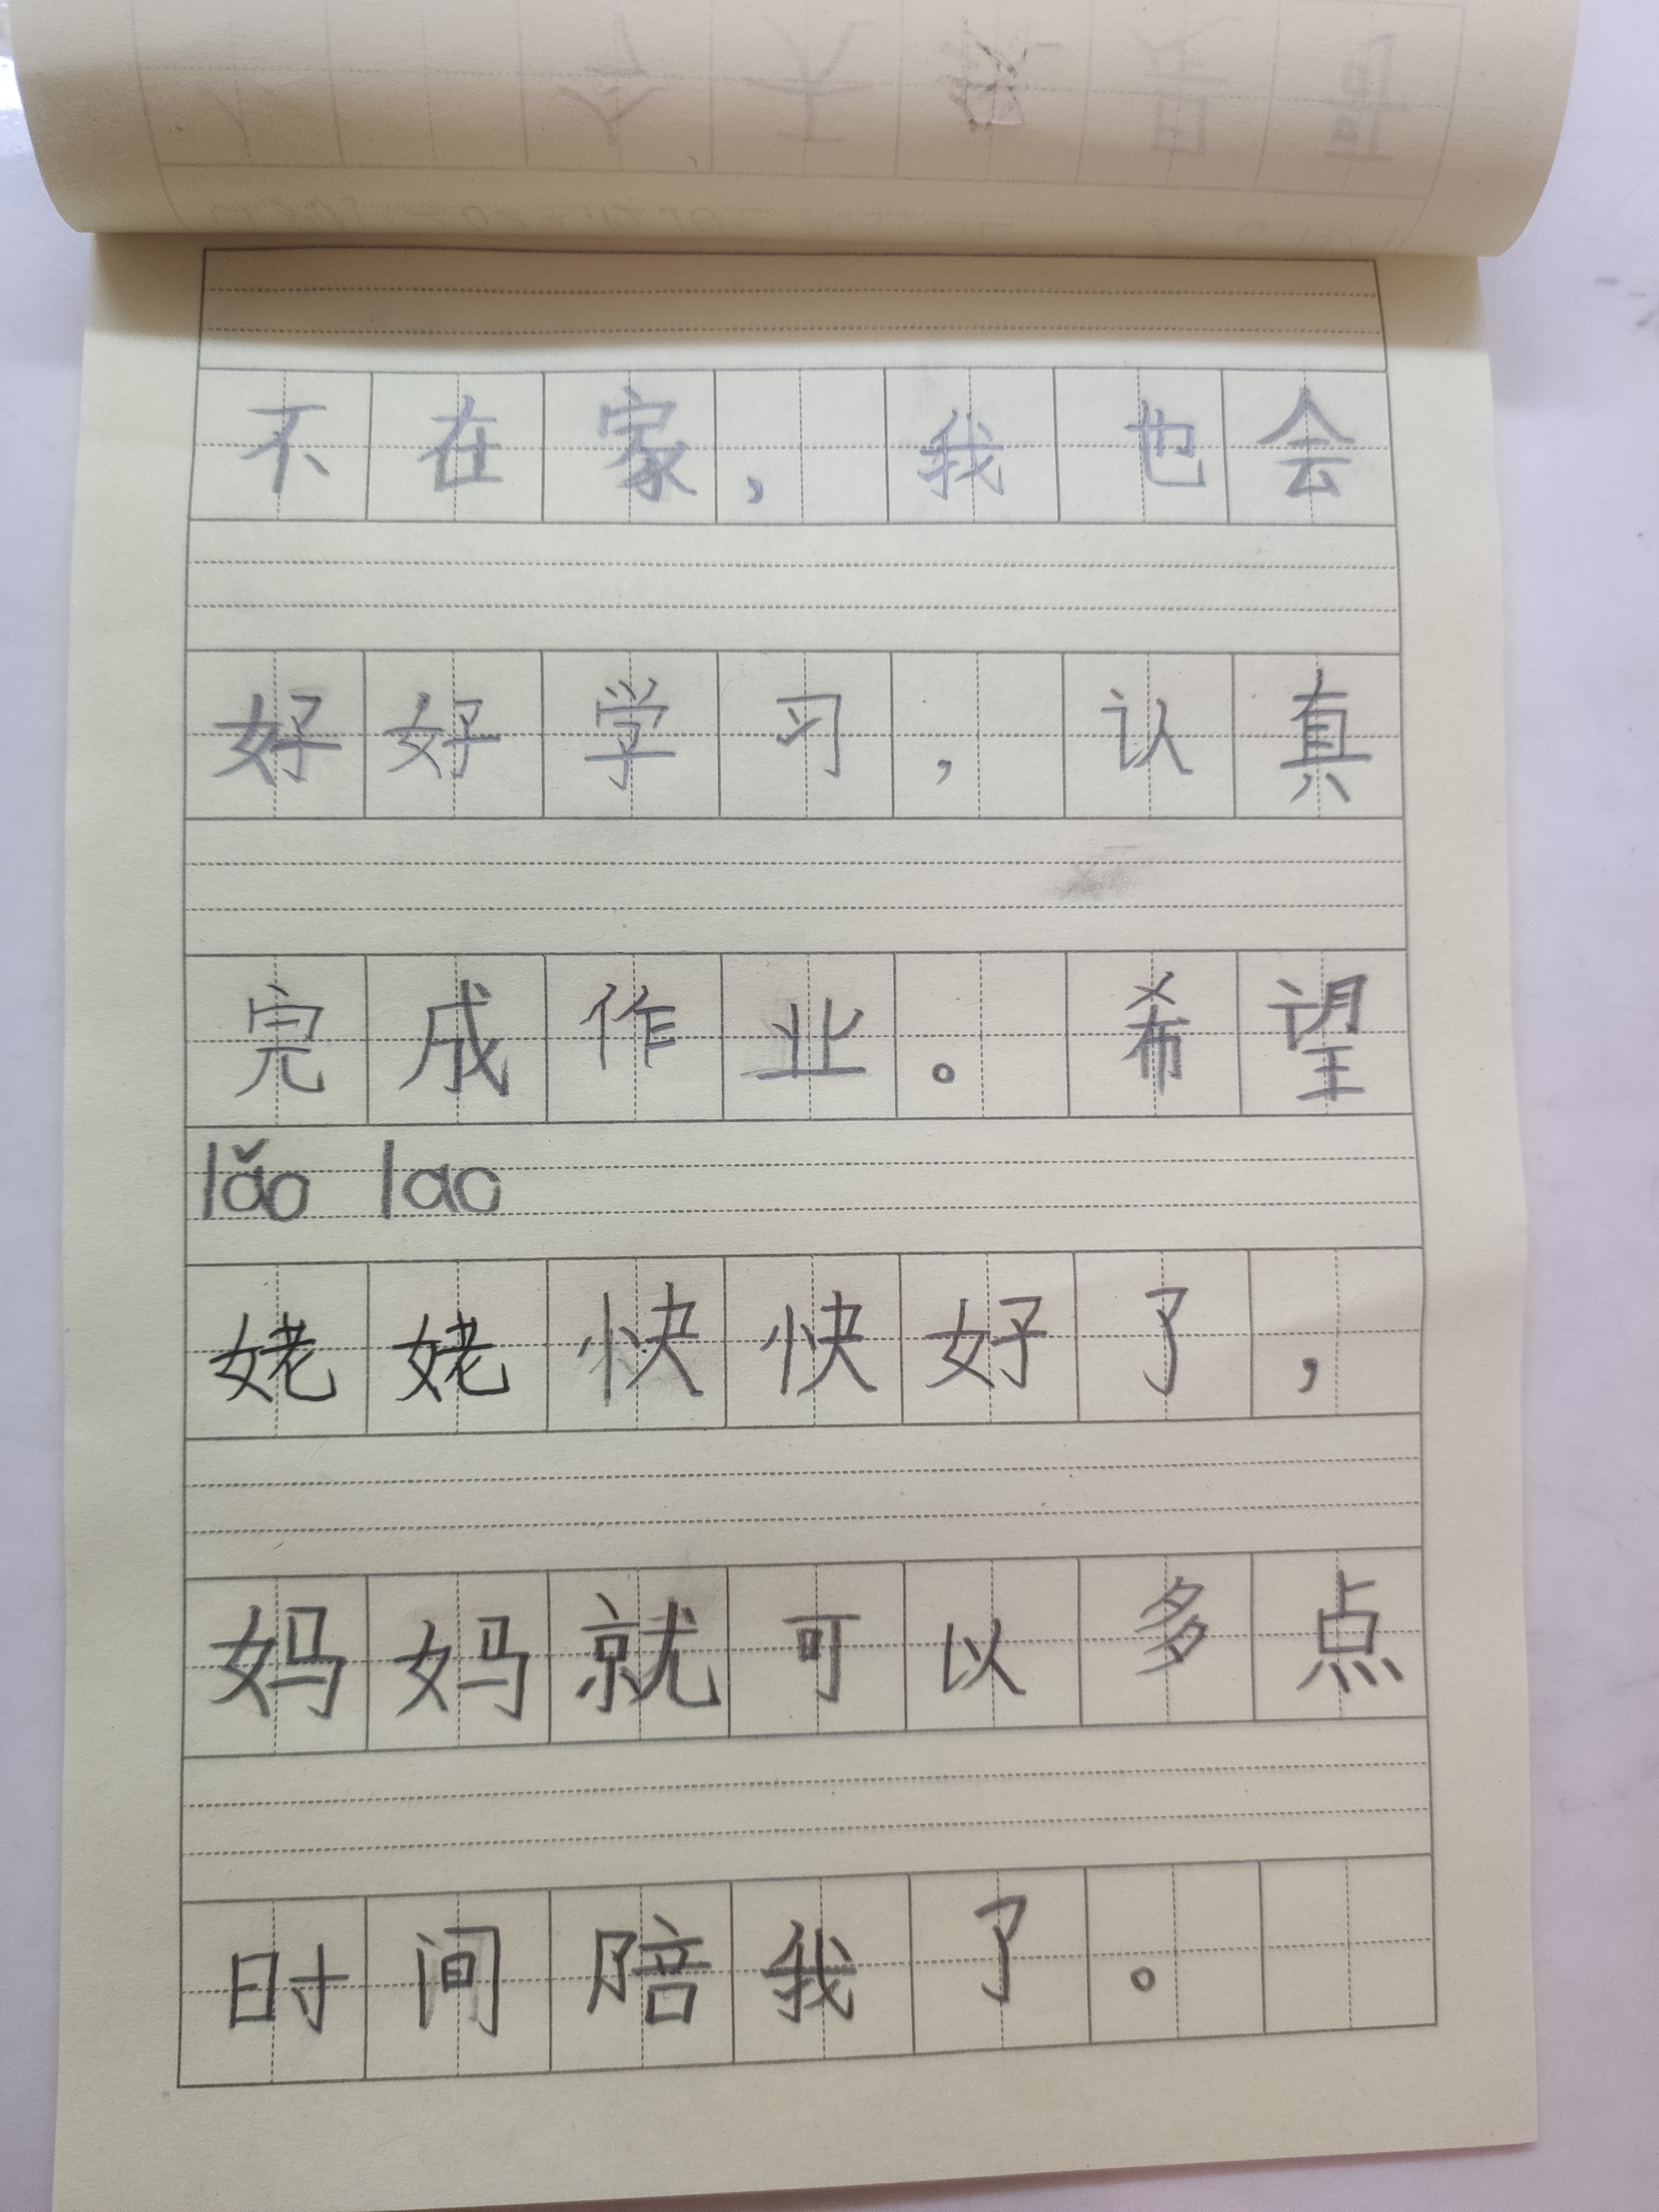 不在家，我也会
好好学习，认真
完成作业。希望
lǎo lao
姥姥快快好了，
妈妈就可以多点
时间陪我了。